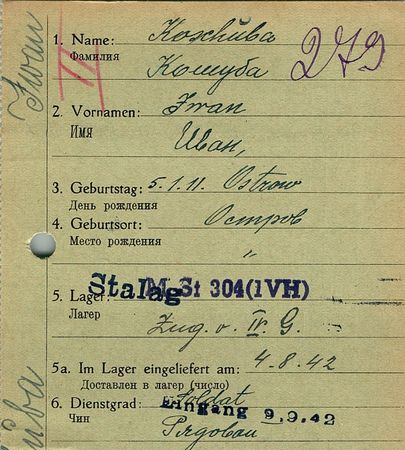 Iwan
II
279
1. Name: Koschuba
Фамилия
Кошуба
2. Vornamen: Iwan
Имя
Иван,
3. Geburtstag: 5.1.11. Ostrow
День рождения
4. Geburtsort: Остров
Место рождения
"
Stalag M. St 304 (IVH)
5. Lager:
Лагер
Zug. v. IV G.
5a. Im Lager eingeliefert am: 4.8.42
Доставлен в лагер (число)
6. Dienstgrad: Soldat
Eingang 9.9.42
Чин
Рядовой